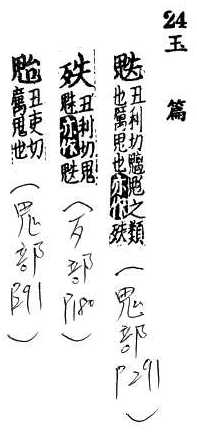 24 玉篇
魅 丑利切魑魅之類
也厲鬼也亦作殀
(鬼部
P291)
殀 丑利切鬼
魅亦作魅
(歹部
P180)
眙 丑吏切
厲鬼也
(鬼部
P291)